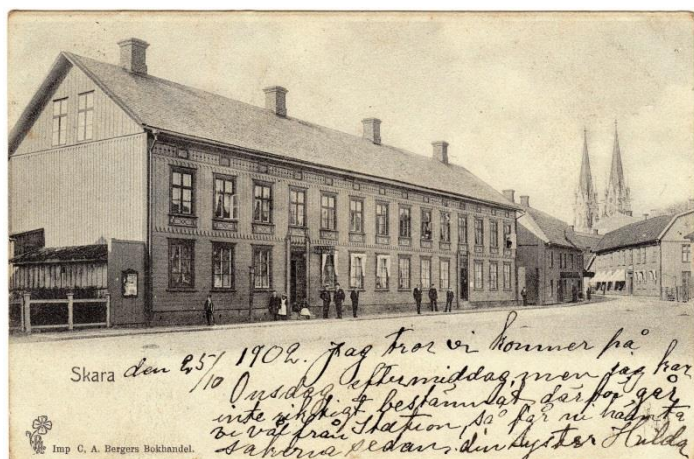 Skara den 25/10 1902. Jag tror vi kommer på
Onsdag eftermiddag, men jag har
inte riktigt bestämdt därför går
vi väl från Station, så får ni hämta
sakerna sedan. din syster Hilda
Imp C. A. Bergers Bokhandel.